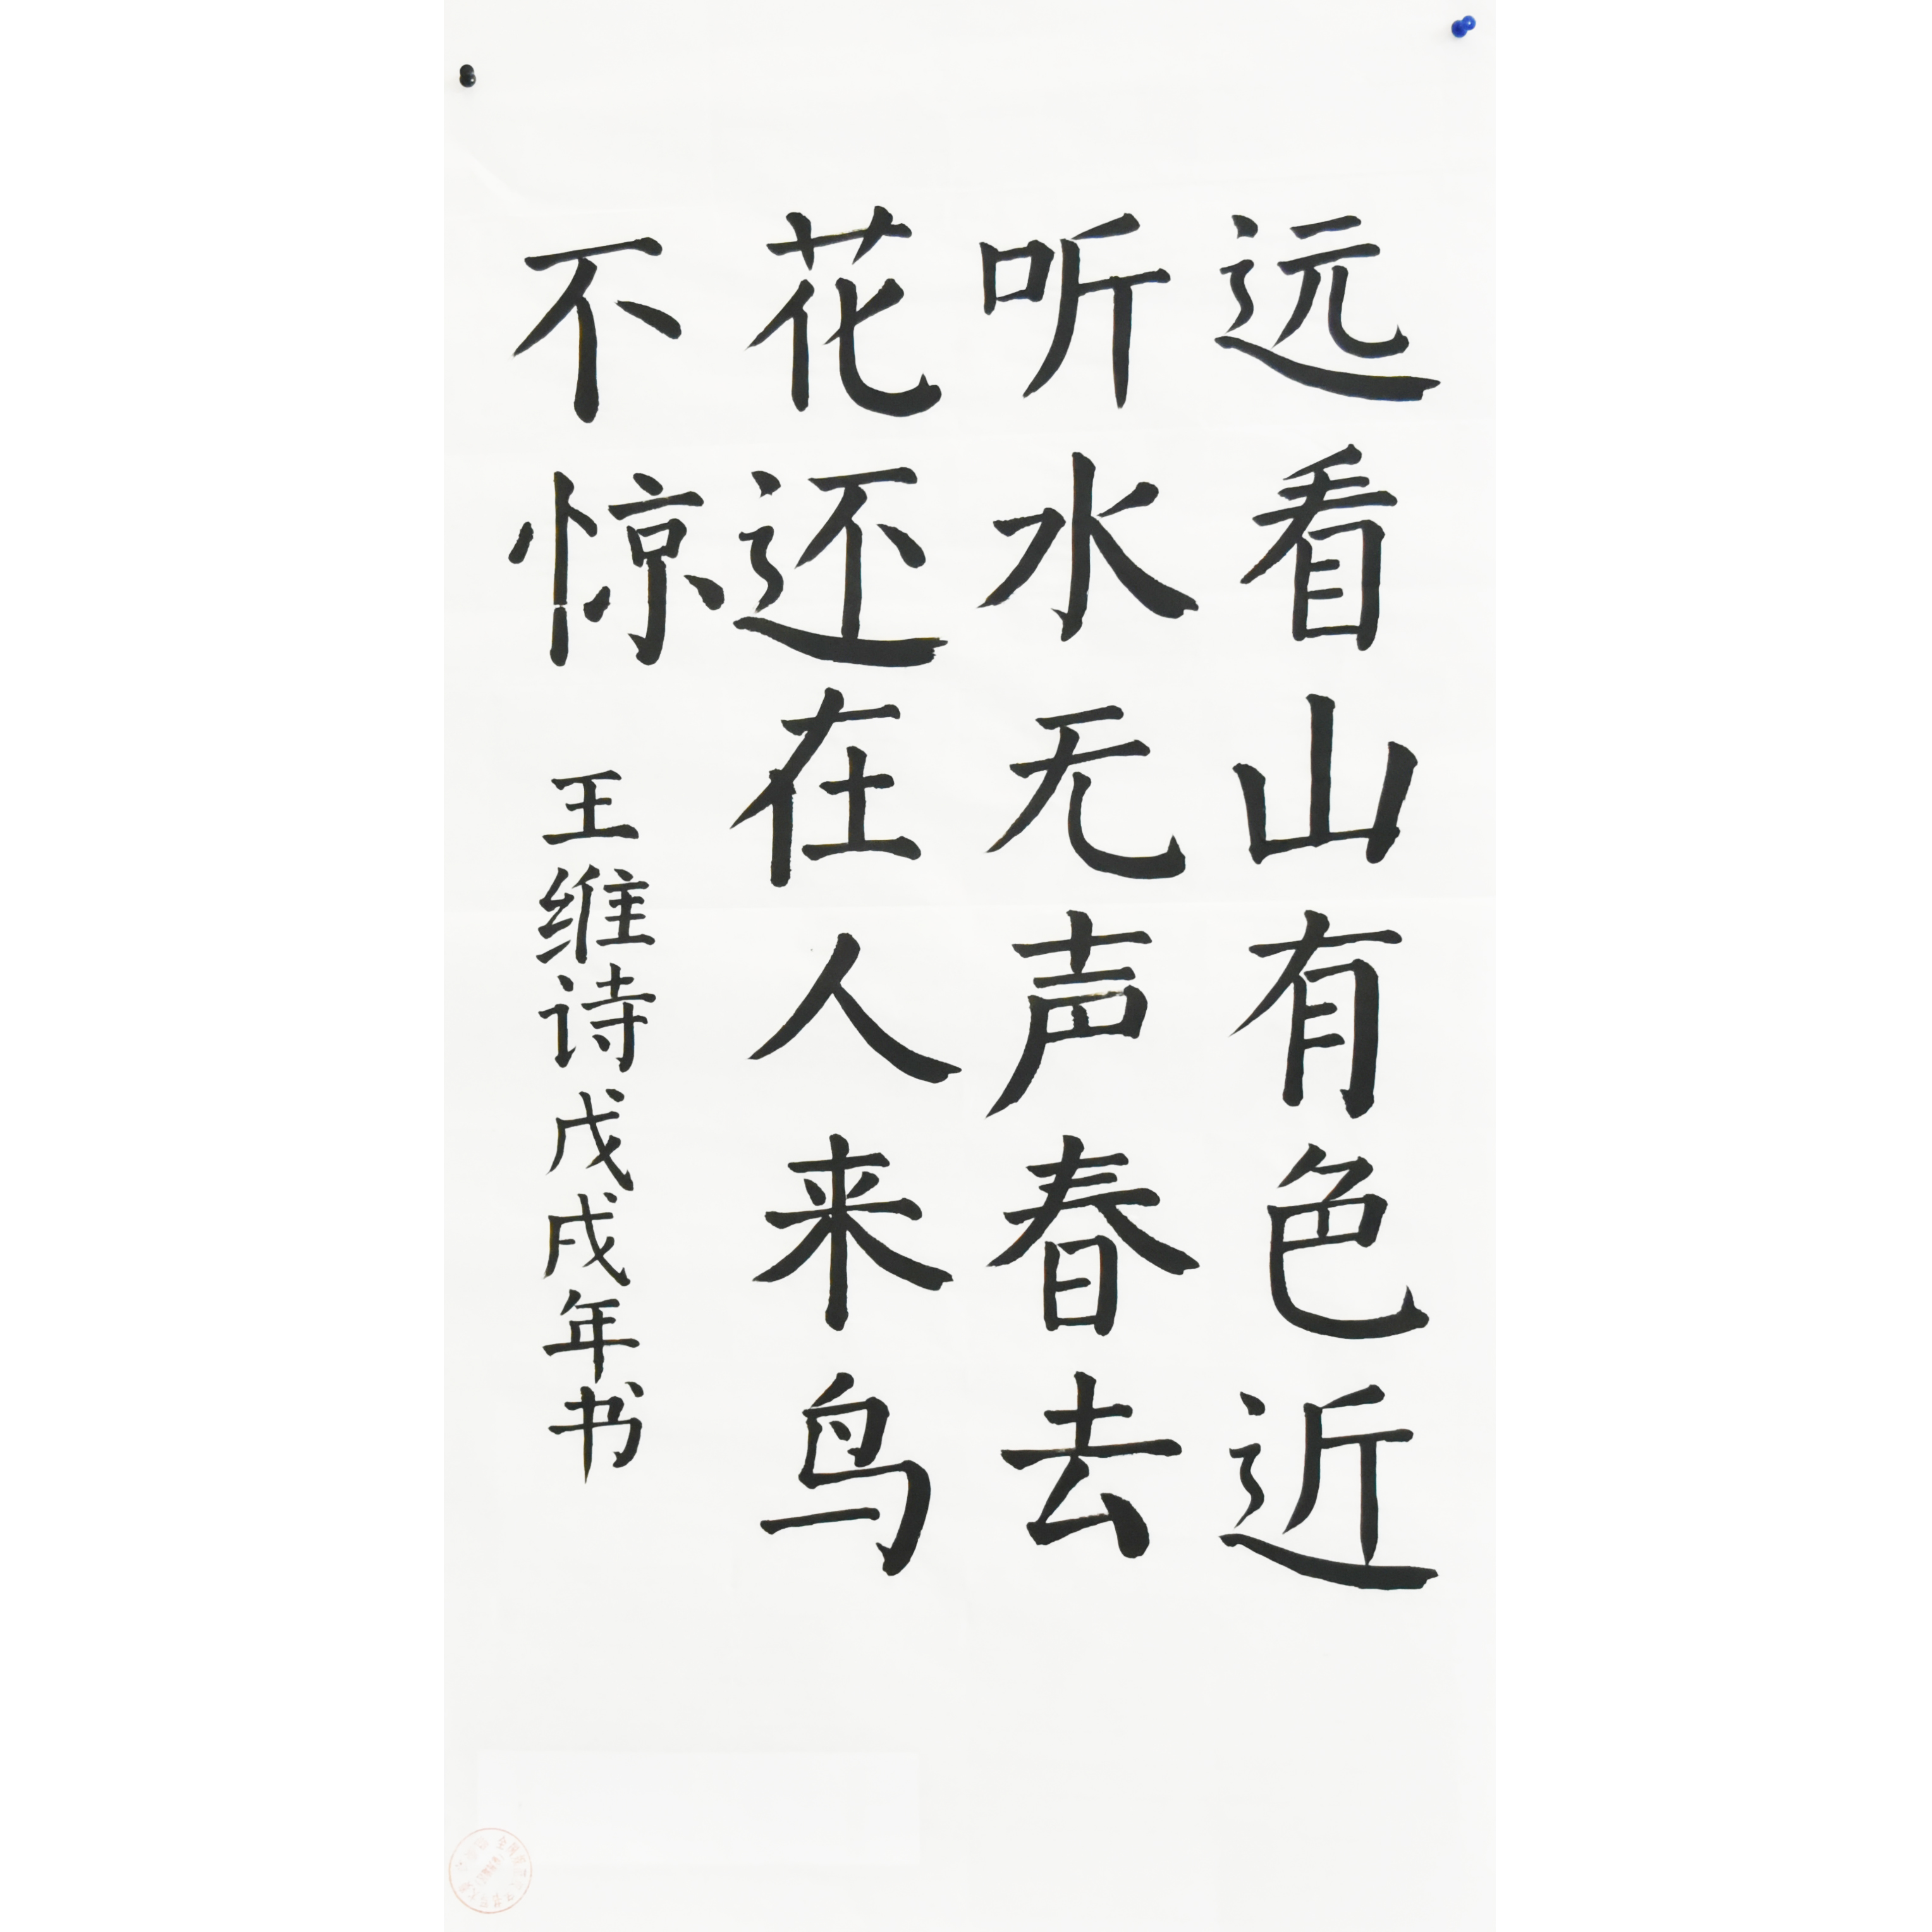 远看山有色近
听水无声春去
花还在人来鸟
不惊
王维诗戊戌年书